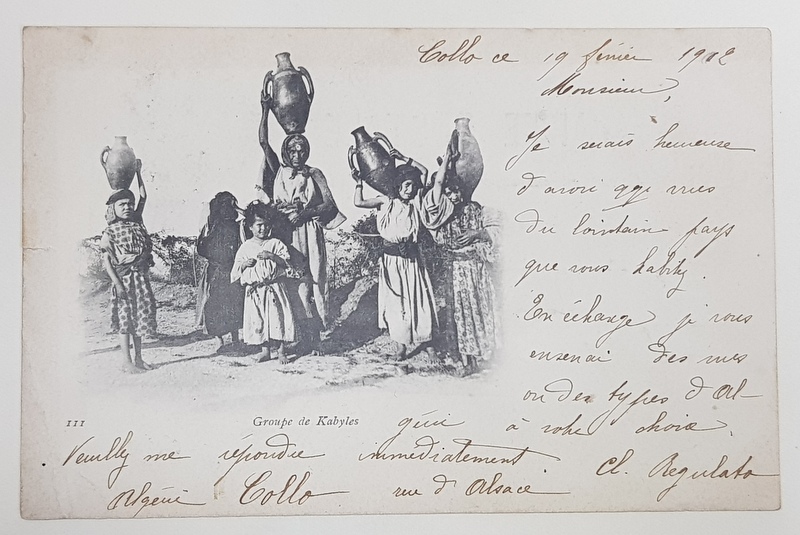 Collo ce 19 février 1902
Monsieur,
Je serais heureuse
d'avoir qqs vues
du lointain pays
que vous habitez.
En échange je vous
enverrai des vues
ou des types d'Al-
111 Groupe de Kabyles
gérie à votre choix.
Veuillez me répondre immédiatement
Cl. Regulato
Algérie Collo rue d'Alsace